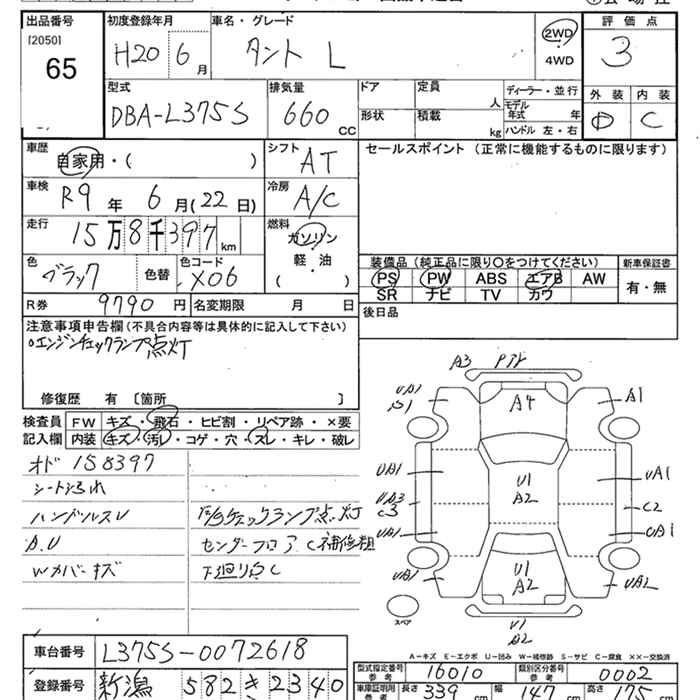 出品番号
[2050]
65
初度登録年月
H20 6月
車名・グレード
タント L
2WD
4WD
評価点
3
外装 内装
D C
型式
DBA-L375S
排気量
660 CC
ドア
形状
定員 人
積載 kg
ディーラー・並行
モデル年式 年
ハンドル 左・右
車歴
自家用・( )
シフト
AT
セールスポイント (正常に機能するものに限ります)
車検
R9年 6月(22日)
冷房
A/C
走行
15万8千397km
燃料
ガソリン
軽・油
( )
色
ブラック
色替
色コード
X06
装備品 (純正品に限り○をつけてください)
PS PW ABS エアB AW
SR ナビ TV カワ
新車保証書
有・無
R券 9790円
名変期限 月 日
後日品
注意事項申告欄(不具合内容等は具体的に記入して下さい)
○エンジンチェックランプ点灯
修復歴 有 [箇所 ]
検査員記入欄
FW キズ・飛石・ヒビ割・リペア跡・×要
内装 キズ・汚レ・コゲ・穴・スレ・キレ・破レ
オド 158397
シート汚れ
ハンドルスレ
A.U
Wカバーキズ
チェックランプ点灯
センターフロア C補修粗
下廻り白C
A3
UA1
A4
A1
UA1
U1
A2
UA1
UA3
C3
C2
UA1
UA1
UA1
U1
A2
UA2
U1
A2
スペア
A―キズ E―エクボ U―凹み W―補修跡 S―サビ C―腐食 ××―交換済
車台番号
L375S-0072618
登録番号
新潟 582 き 2340
型式指定番号
参考
16010
類別区分番号
参考
0002
車庫証明用
参考
長さ 339cm
幅 147cm
高さ 175cm